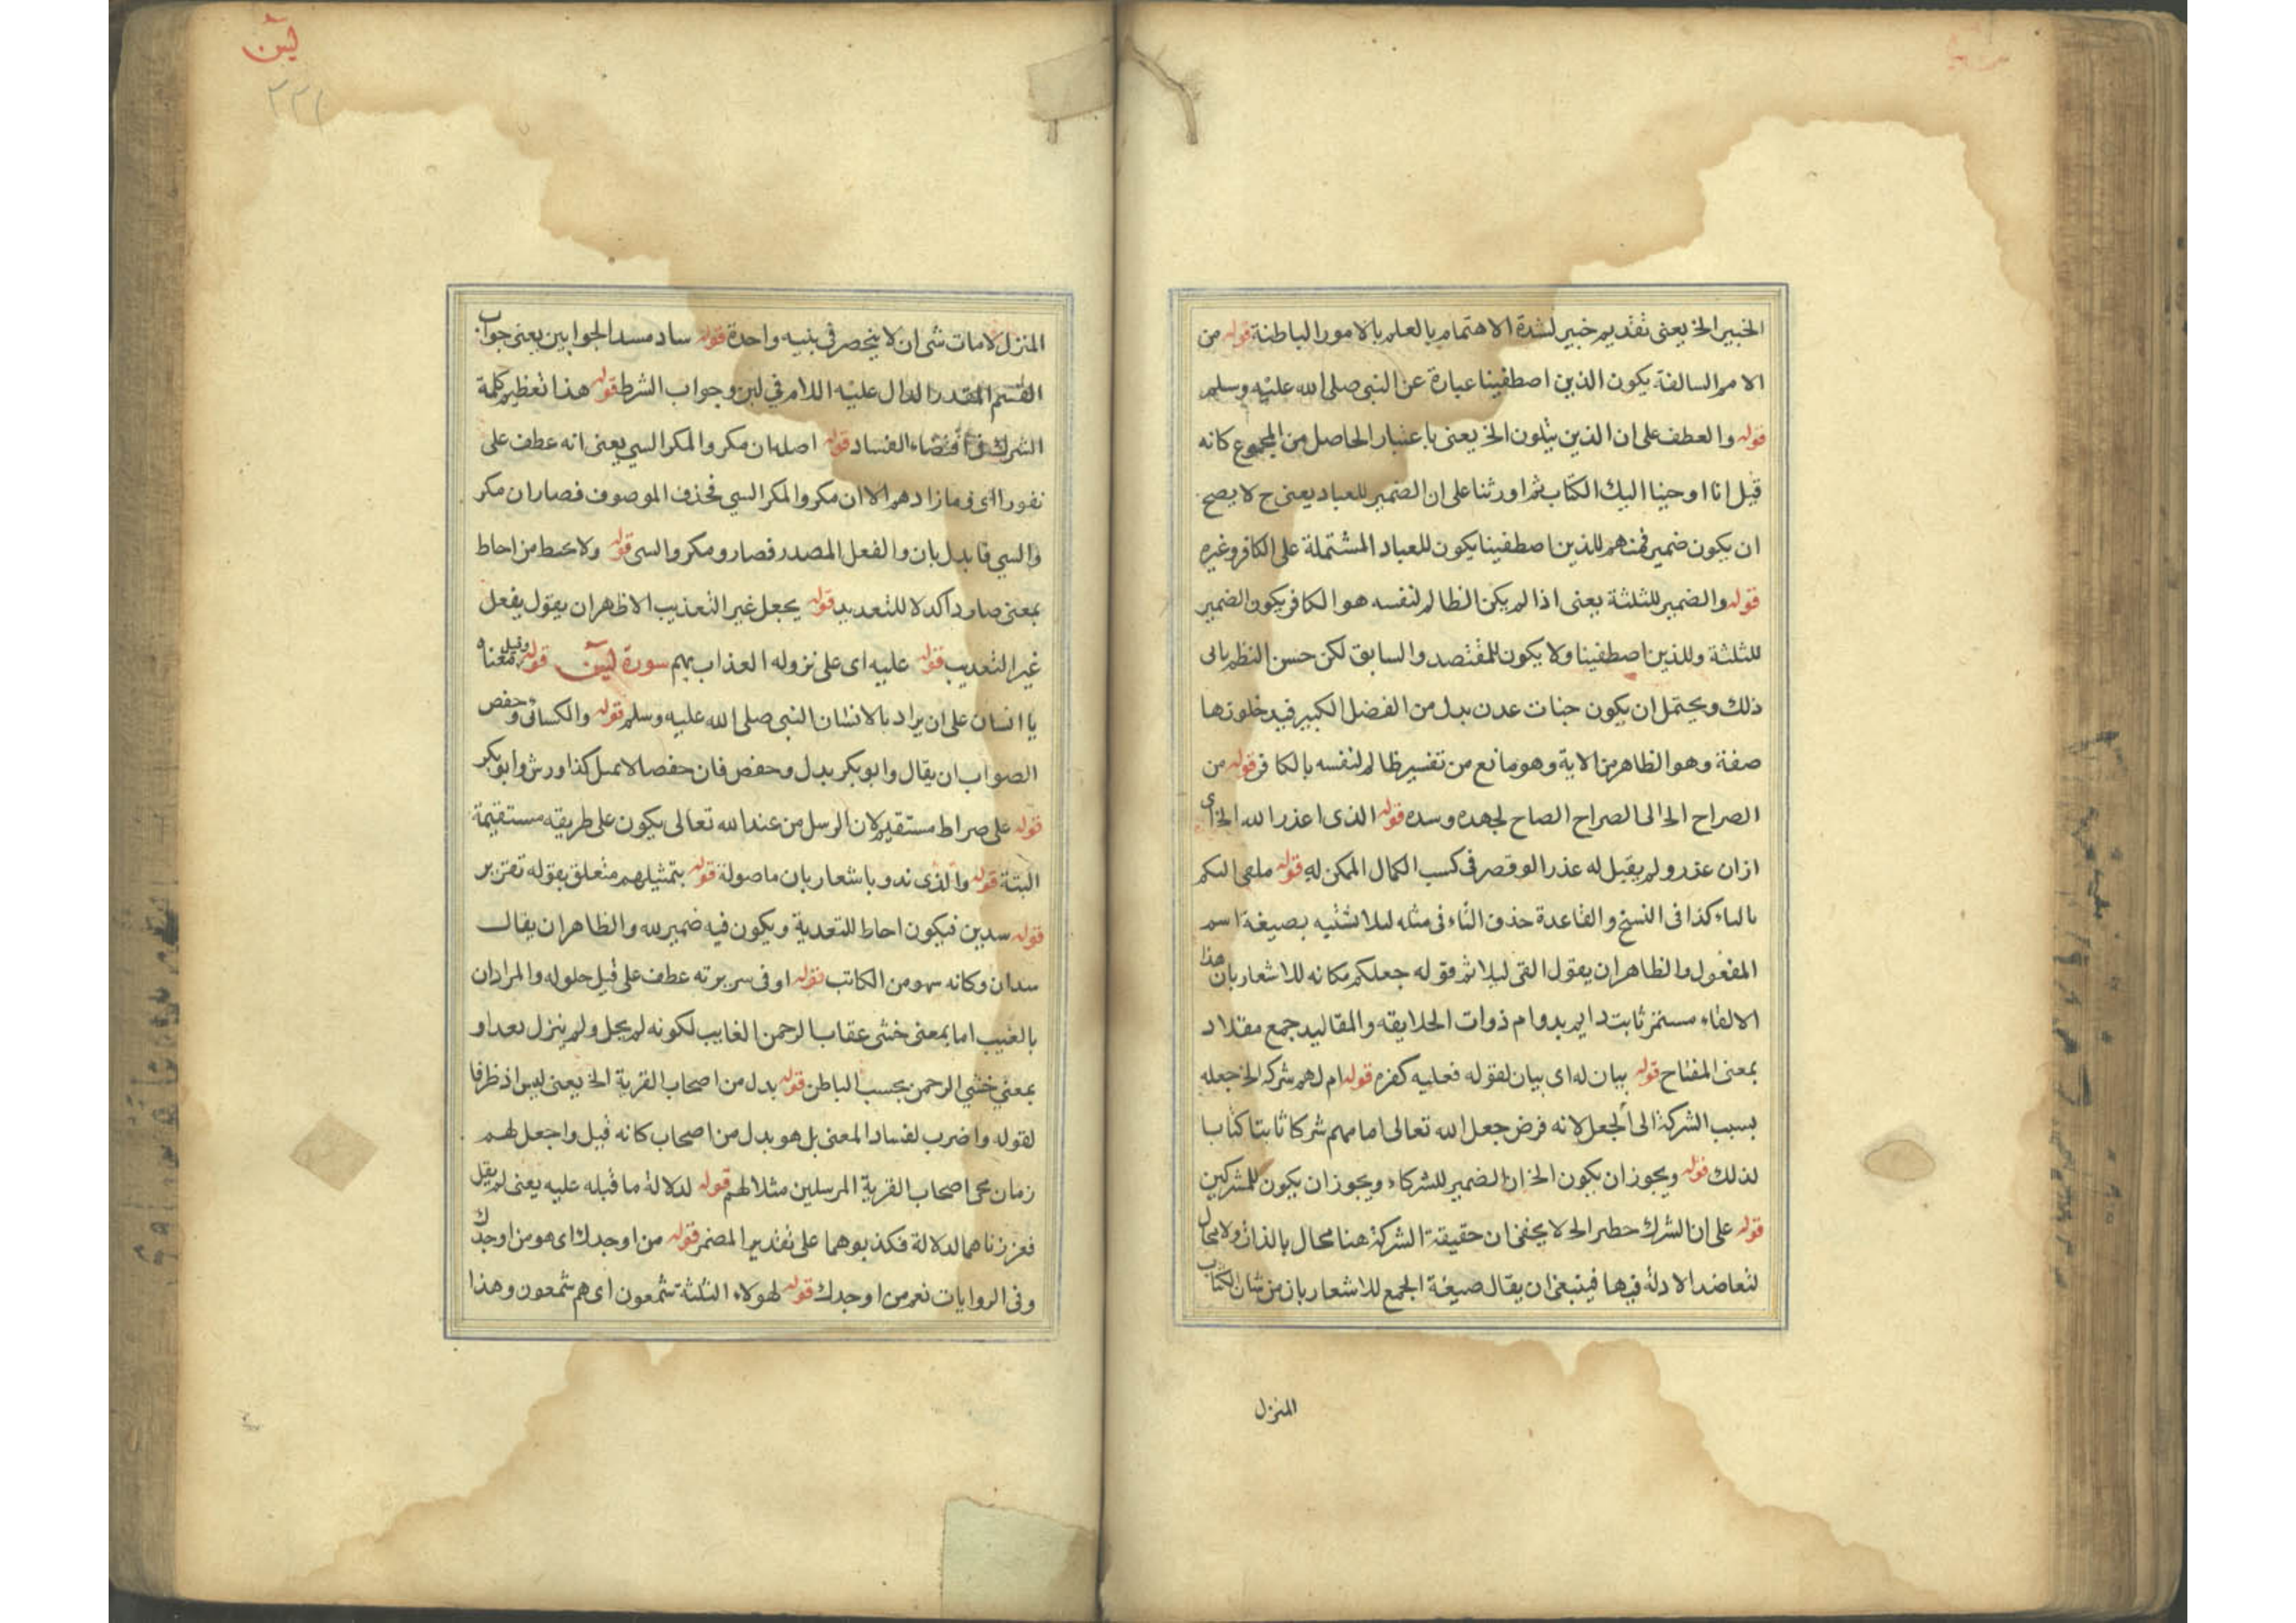 الخبير الخ يعنى تقديم خبير لشدة الاهتمام بالعلم بالامور الباطنة قوله من
الامم السالفة يكون الذين اصطفينا عبارة عن النبى صلى الله عليه وسلم
قوله والعطف على ان الذين يتلون الخ يعنى باعتبار الحاصل من المجموع كانه
قيل انا اوحينا اليك الكتاب ثم اورثنا على ان الضمير للعباد يعنى ح لا يصح
ان يكون ضمير فمنهم للذين اصطفينا يكون للعباد المشتملة على الكافر وغيره
قوله والضمير للثلثة يعنى اذا لم يكن الظالم لنفسه هو الكافر يكون الضمير
للثلثة وللذين اصطفينا ولا يكون للمقتصد والسابق لكن حسن النظم يابى
ذلك ويحتمل ان يكون جنات عدن بدل من الفضل الكبير فيدخلونها
صفة وهو الظاهر من الاية وهو مانع من تفسير ظالم لنفسه بالكافر قوله من
الصراح الخ الى الصراح الصاح لجهده وسده قوله الذى اعذر الله الخ اى
ازان عذره ولم يقبل له عذرا لو قصر فى كسب الكمال الممكن له قوله ملقى اليكم
بالياء كذا فى النسخ والقاعدة حذف الياء فى مثله ليلا تشبه بصيغة اسم
المفعول والظاهر ان يقول القى ليلا ثم قوله جعلكم مكانه للاشعار بان هذا
الالقاء مستمر ثابت دايم بدوام ذوات الخلايقه والمقاليد جمع مقلاد
بمعنى المفتاح قوله بيان له اى بيان لقوله فعليه كفره قوله ام لهم شركة الخ جعله
بسبب الشركة الى الجعل لانه فرض جعل الله تعالى اما مهم شركا ثابتا كتابا
لذلك قوله ويجوز ان يكون الخ ان الضمير للشركاء ويجوز ان يكون للمشركين
قوله على ان الشرك خطير الخ لا يخفى ان حقيقة الشركة هنا محال بالذات ولا مجال
لتعاضد الادلة فيها فينبغى ان يقال صيغة الجمع للاشعار بان من شان الكتاب
المنزل
يس
٢٢١
المنزل لامات شى ان لا ينحصر فى بنيه واحدة قوله ساد مسد الجوابين يعنى جواب
القسم المقدر الدال عليه اللام فى لين وجواب الشرط قوله هذا تعظيم كلمة
الشرك فى اقتضاء الفساد قوله اصله ان مكروا المكر السيئ يعنى انه عطف على
نفورا اى وما زادهم الا ان مكروا المكر السيئ فحذف الموصوف فصار ان مكر
والسيئ فابدل بان والفعل المصدر فصار ومكر والسيئ قوله ولا يحيط من احاط
بمعنى صار داكد لا للتعديد قوله يجعل غير التعذيب الاظهر ان يقول يفعل
غير التعذيب قوله عليه اى على نزوله العذاب بهم سورة يس قوله وقيل معناه
يا انسان على ان يراد بالانسان النبى صلى الله عليه وسلم قوله والكسائى وحفص
الصواب ان يقال وابو بكر بدل وحفص فان حفصا لا يميل كذا ورش وابو بكر
قوله على صراط مستقيم لان الرسل من عند الله تعالى يكون على طريقه مستقيمة
البتة قوله والذى ندوبا شعار بان ما صولة قوله بتمثيلهم متعلق بقوله تقرير
قوله سدين فيكون احاط للتعدية ويكون فيه ضمير لله والظاهر ان يقال
سدان وكانه سهو من الكاتب قوله او فى سريرته عطف على قبل حلوله والمراد ان
بالغيب اما بمعنى خشى عقاب الرحمن الغايب لكونه لم يحل ولم ينزل بعد او
بمعنى خشى الرحمن بحسب الباطن قوله بدل من اصحاب القرية الخ يعنى ليس اذ ظرفا
لقوله واضرب لفساد المعنى بل هو بدل من اصحاب كانه قيل واجعل لهم
زمان مجى اصحاب القرية المرسلين مثلا لهم قوله لدلالة ما قبله عليه يعنى لم يقل
فعززناهما لدلالة فكذبوهما على تقدير المضمر قوله من اوجدك اى هو من اوجدك
وفى الروايات نعم من اوجدك قوله لهولاء الثلثة شمعون اى هم شمعون وهذا